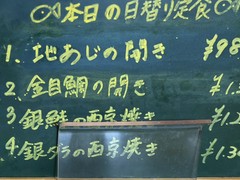 本日の日替り定食
1. 地あじの開き ¥98
2. 金目鯛の開き ¥1.
3 銀鮭の西京焼き ¥1.2
4. 銀ダラの西京焼き ¥1.3